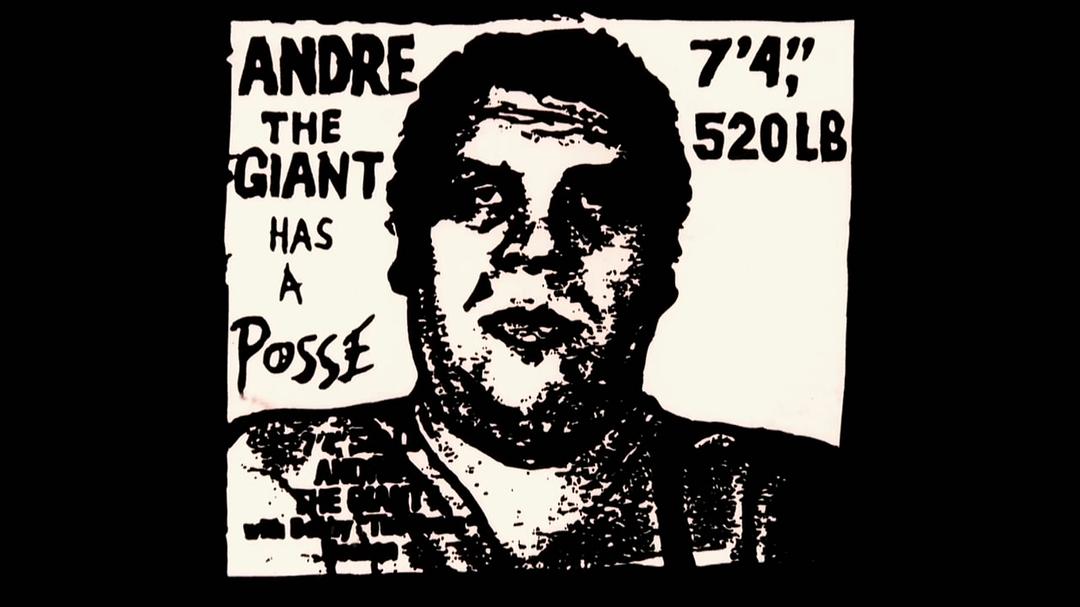 ANDRE
THE
GIANT
HAS
A
POSSE
7'4",
520 LB
THE GIANT
with